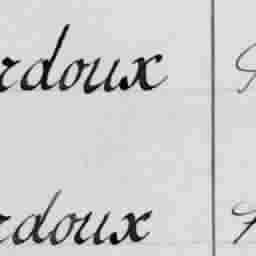 rdoux
rdoux